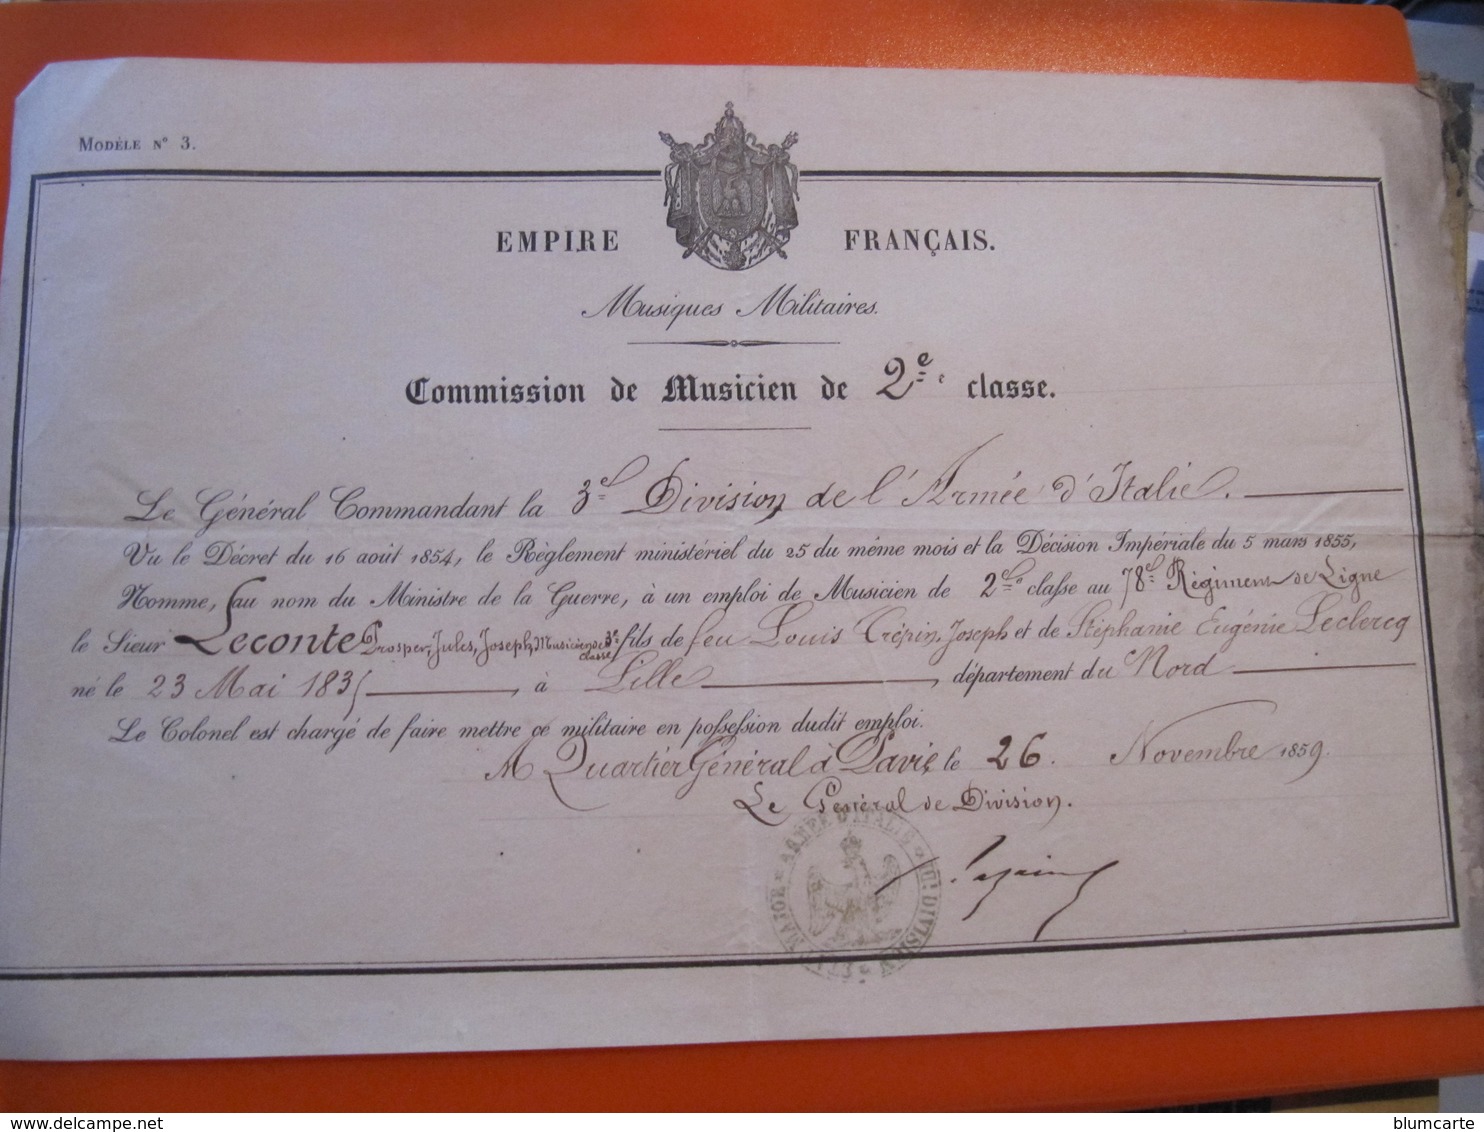 MODÈLE N° 3.
EMPIRE FRANÇAIS.
Musiques Militaires.
Commission de Musicien de 2e classe.
Le Général Commandant la 3e Division de l'Armée d'Italie.
Vu le Décret du 16 août 1854, le Règlement ministériel du 25 du même mois et la Décision Impériale du 5 mars 1855,
Nomme, au nom du Ministre de la Guerre, à un emploi de Musicien de 2e classe au 78e Régiment de Ligne
le Sieur Leconte Prosper, Jules, Joseph, Musicien de 3e classe fils de feu Louis Crépin, Joseph et de Stéphanie Eugénie Leclercq
né le 23 Mai 1835, à Lille, département du Nord
Le Colonel est chargé de faire mettre ce militaire en possession dudit emploi.
A Quartier Général à Pavie, le 26 Novembre 1859.
Le Général de Division.
ÉTAT MAJOR ARMÉE D'ITALIE DIVISION
blumcarte